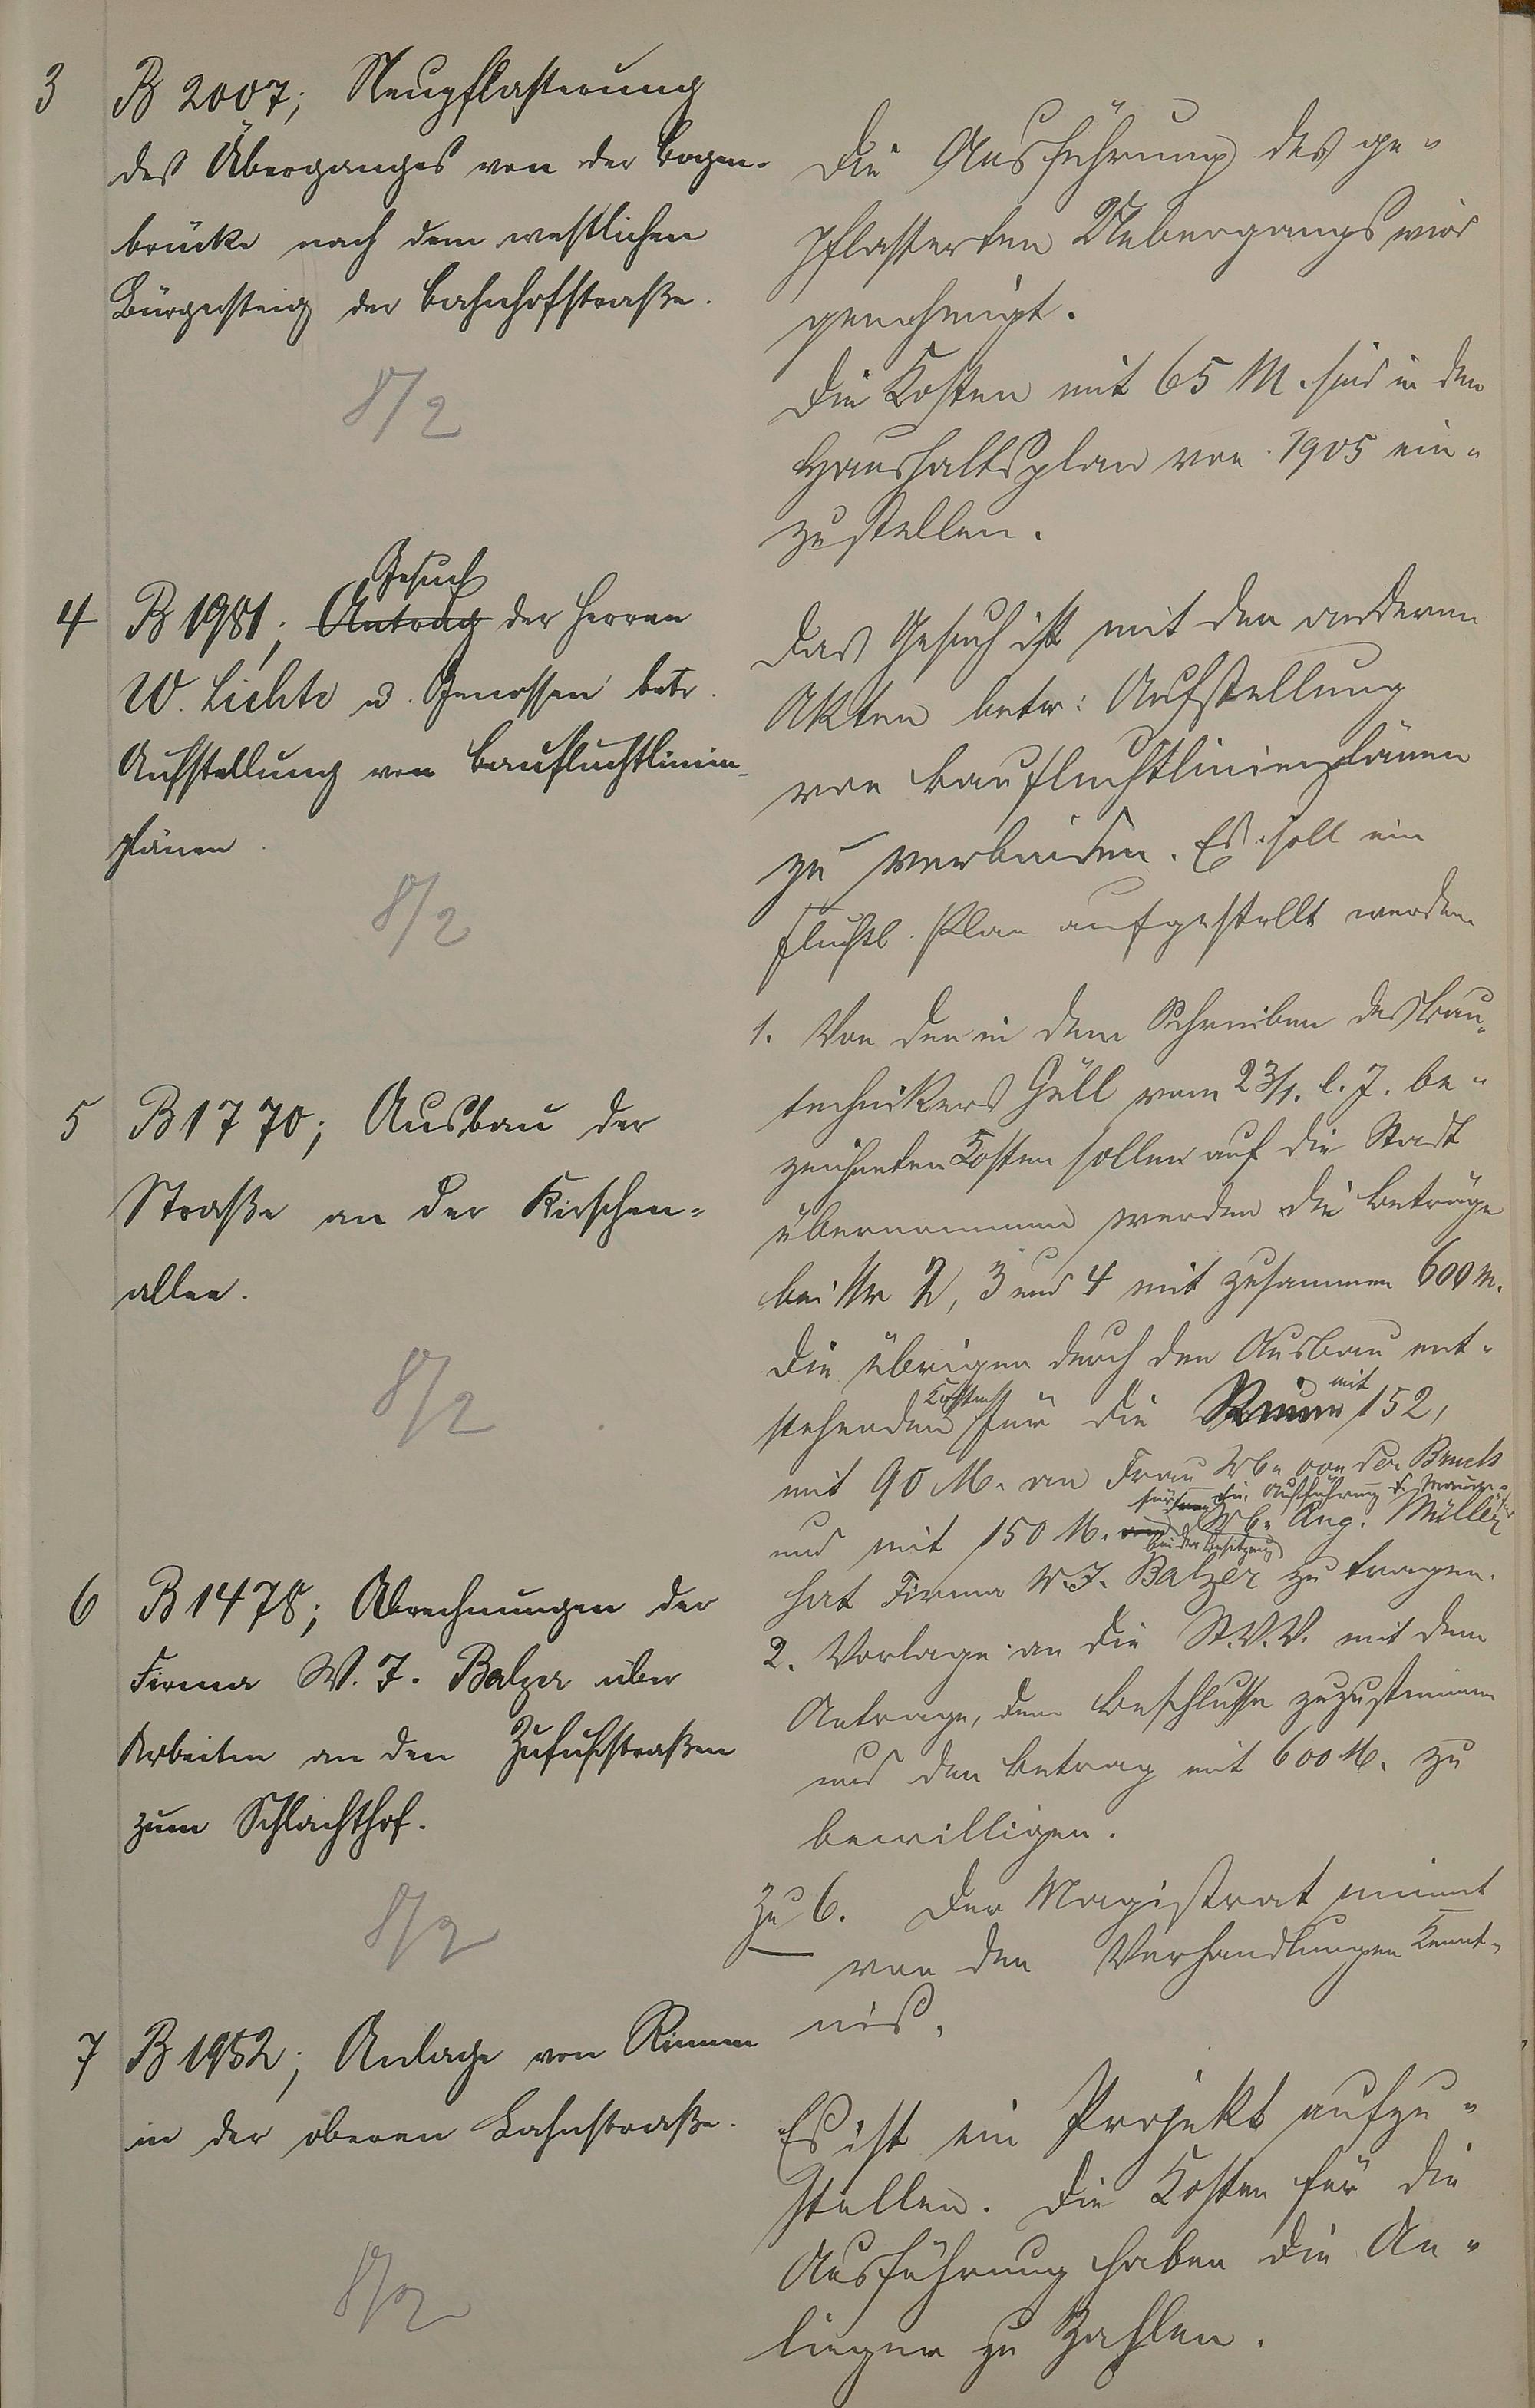 3 B 2007; Neupflasterung
des Überganges von der Bogen-
brücke nach dem westlichen
Bürgersteig der Bahnhofstraße.
8/2
Die Ausführung des ge-
pflasterten Uebergangs wird
genehmigt.
Die Kosten mit 65 M. sind in den
Haushaltsplan von 1905 ein-
zustellen.
Gesuch
4 B 1981; Antrag der Herren
W. Lichte u. Genossen betr.
Aufstellung von Baufluchtlinien-
plänen.
8/2
Das Gesuch ist mit den anderen
Akten betr: Aufstellung
von Baufluchtlinienplänen
zu verbinden. Es soll ein
Fluchtl. Plan aufgestellt werden.
5 B 1770; Ausbau der
Straße an der Kirschen-
allee.
8/2
1. Von den in dem Schreiben des Bau-
technikers Güll vom 23/1. l. J. be-
zeichneten Kosten sollen auf die Stadt
übernommen werden die Beträge
bei Nr 2, 3 und 4 mit zusammen 600 M.
Die übrigen durch den Ausbau ent-
Kosten mit
stehenden für die Rinne 152,
mit 90 M. an Frau Wb. von der Bruck
für die Ausführung d.
und mit 150 M. Wb. Aug. Müller
bei der Besitzung
hat Firma W. J. Balzer zu tragen.
2. Vorlage an die St.V.V. mit dem
Antrage, dem Beschlusse zuzustimmen
und den Betrag mit 600 M. zu
bewilligen.
6 B 1478; Abrechnungen der
Firma W. J. Balzer über
Arbeiten an den Zufuhrstraßen
zum Schlachthof.
8/2
Zu 6. Der Magistrat nimmt
von den Verhandlungen Kennt-
nis.
7 B 1952; Anlage von Rinnen
in der oberen Lahnstraße.
8/2
Es ist ein Projekt aufzu-
stellen. Die Kosten für die
Ausführung haben die An-
lieger zu zahlen.